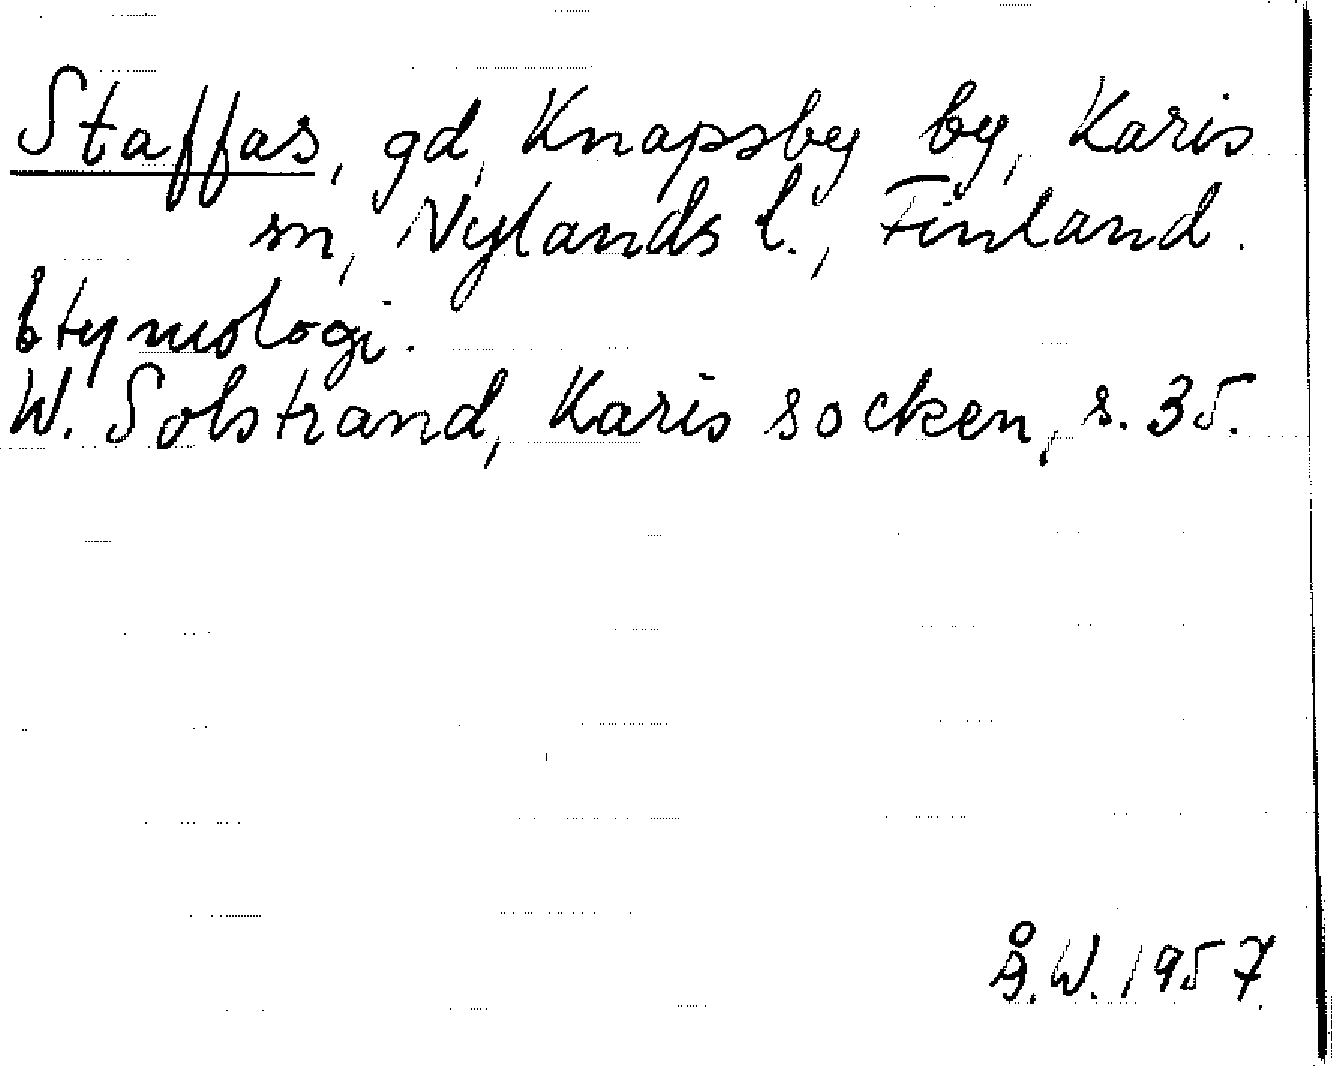 Staffas, gd, Knapsby by, Karis
sn, Nylands l., Finland.
Etymologi.
W. Solstrand, Karis socken, s. 35.
Å.W. 1957.